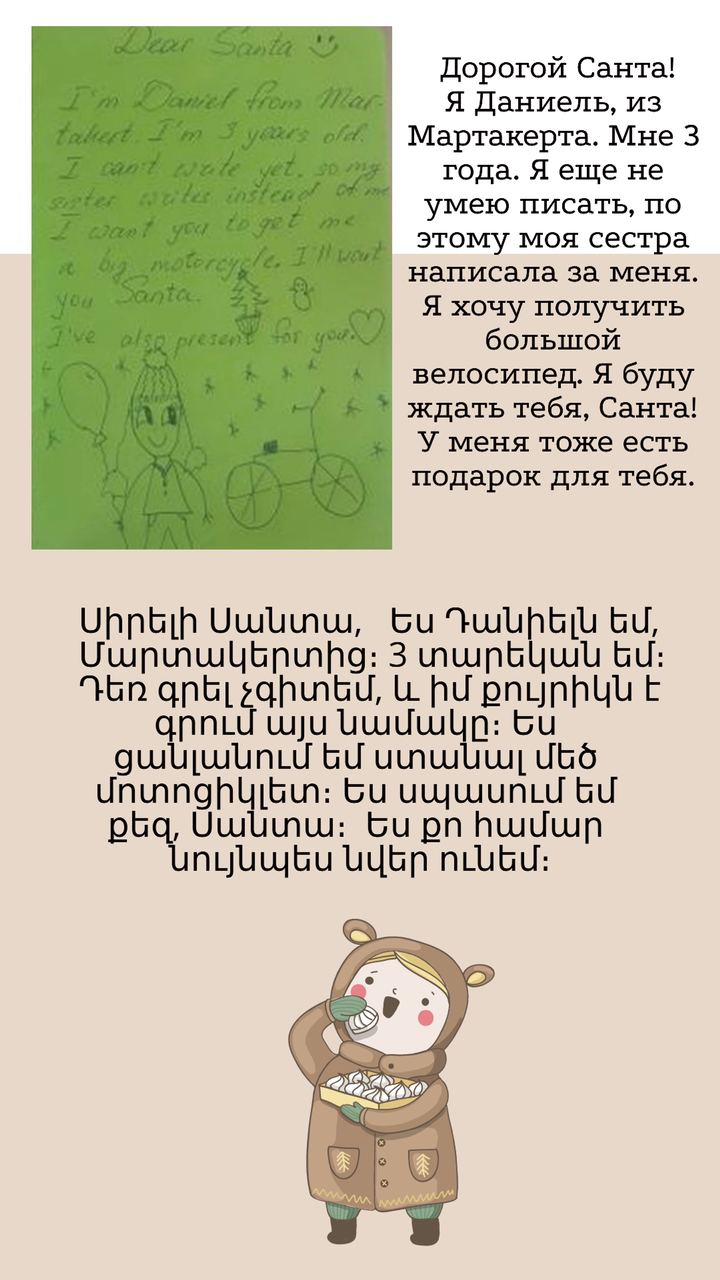 Dear Santa
I'm Daniel from Mar-
takert. I'm 3 years old.
I can't write yet, so my
sister writes instead of me
I want you to get me
a big motorcycle. I'll wait
you Santa.
I've also present for you.
Дорогой Санта!
Я Даниель, из
Мартакерта. Мне 3
года. Я еще не
умею писать, по
этому моя сестра
написала за меня.
Я хочу получить
большой
велосипед. Я буду
ждать тебя, Санта!
У меня тоже есть
подарок для тебя.
Սիրելի Սանտա, Ես Դանիելն եմ,
Մարտակերտից։ 3 տարեկան եմ։
Դեռ գրել չգիտեմ, և իմ քույրիկն է
գրում այս նամակը։ Ես
ցանլանում եմ ստանալ մեծ
մոտոցիկլետ։ Ես սպասում եմ
քեզ, Սանտա։ Ես քո համար
նույնպես նվեր ունեմ։